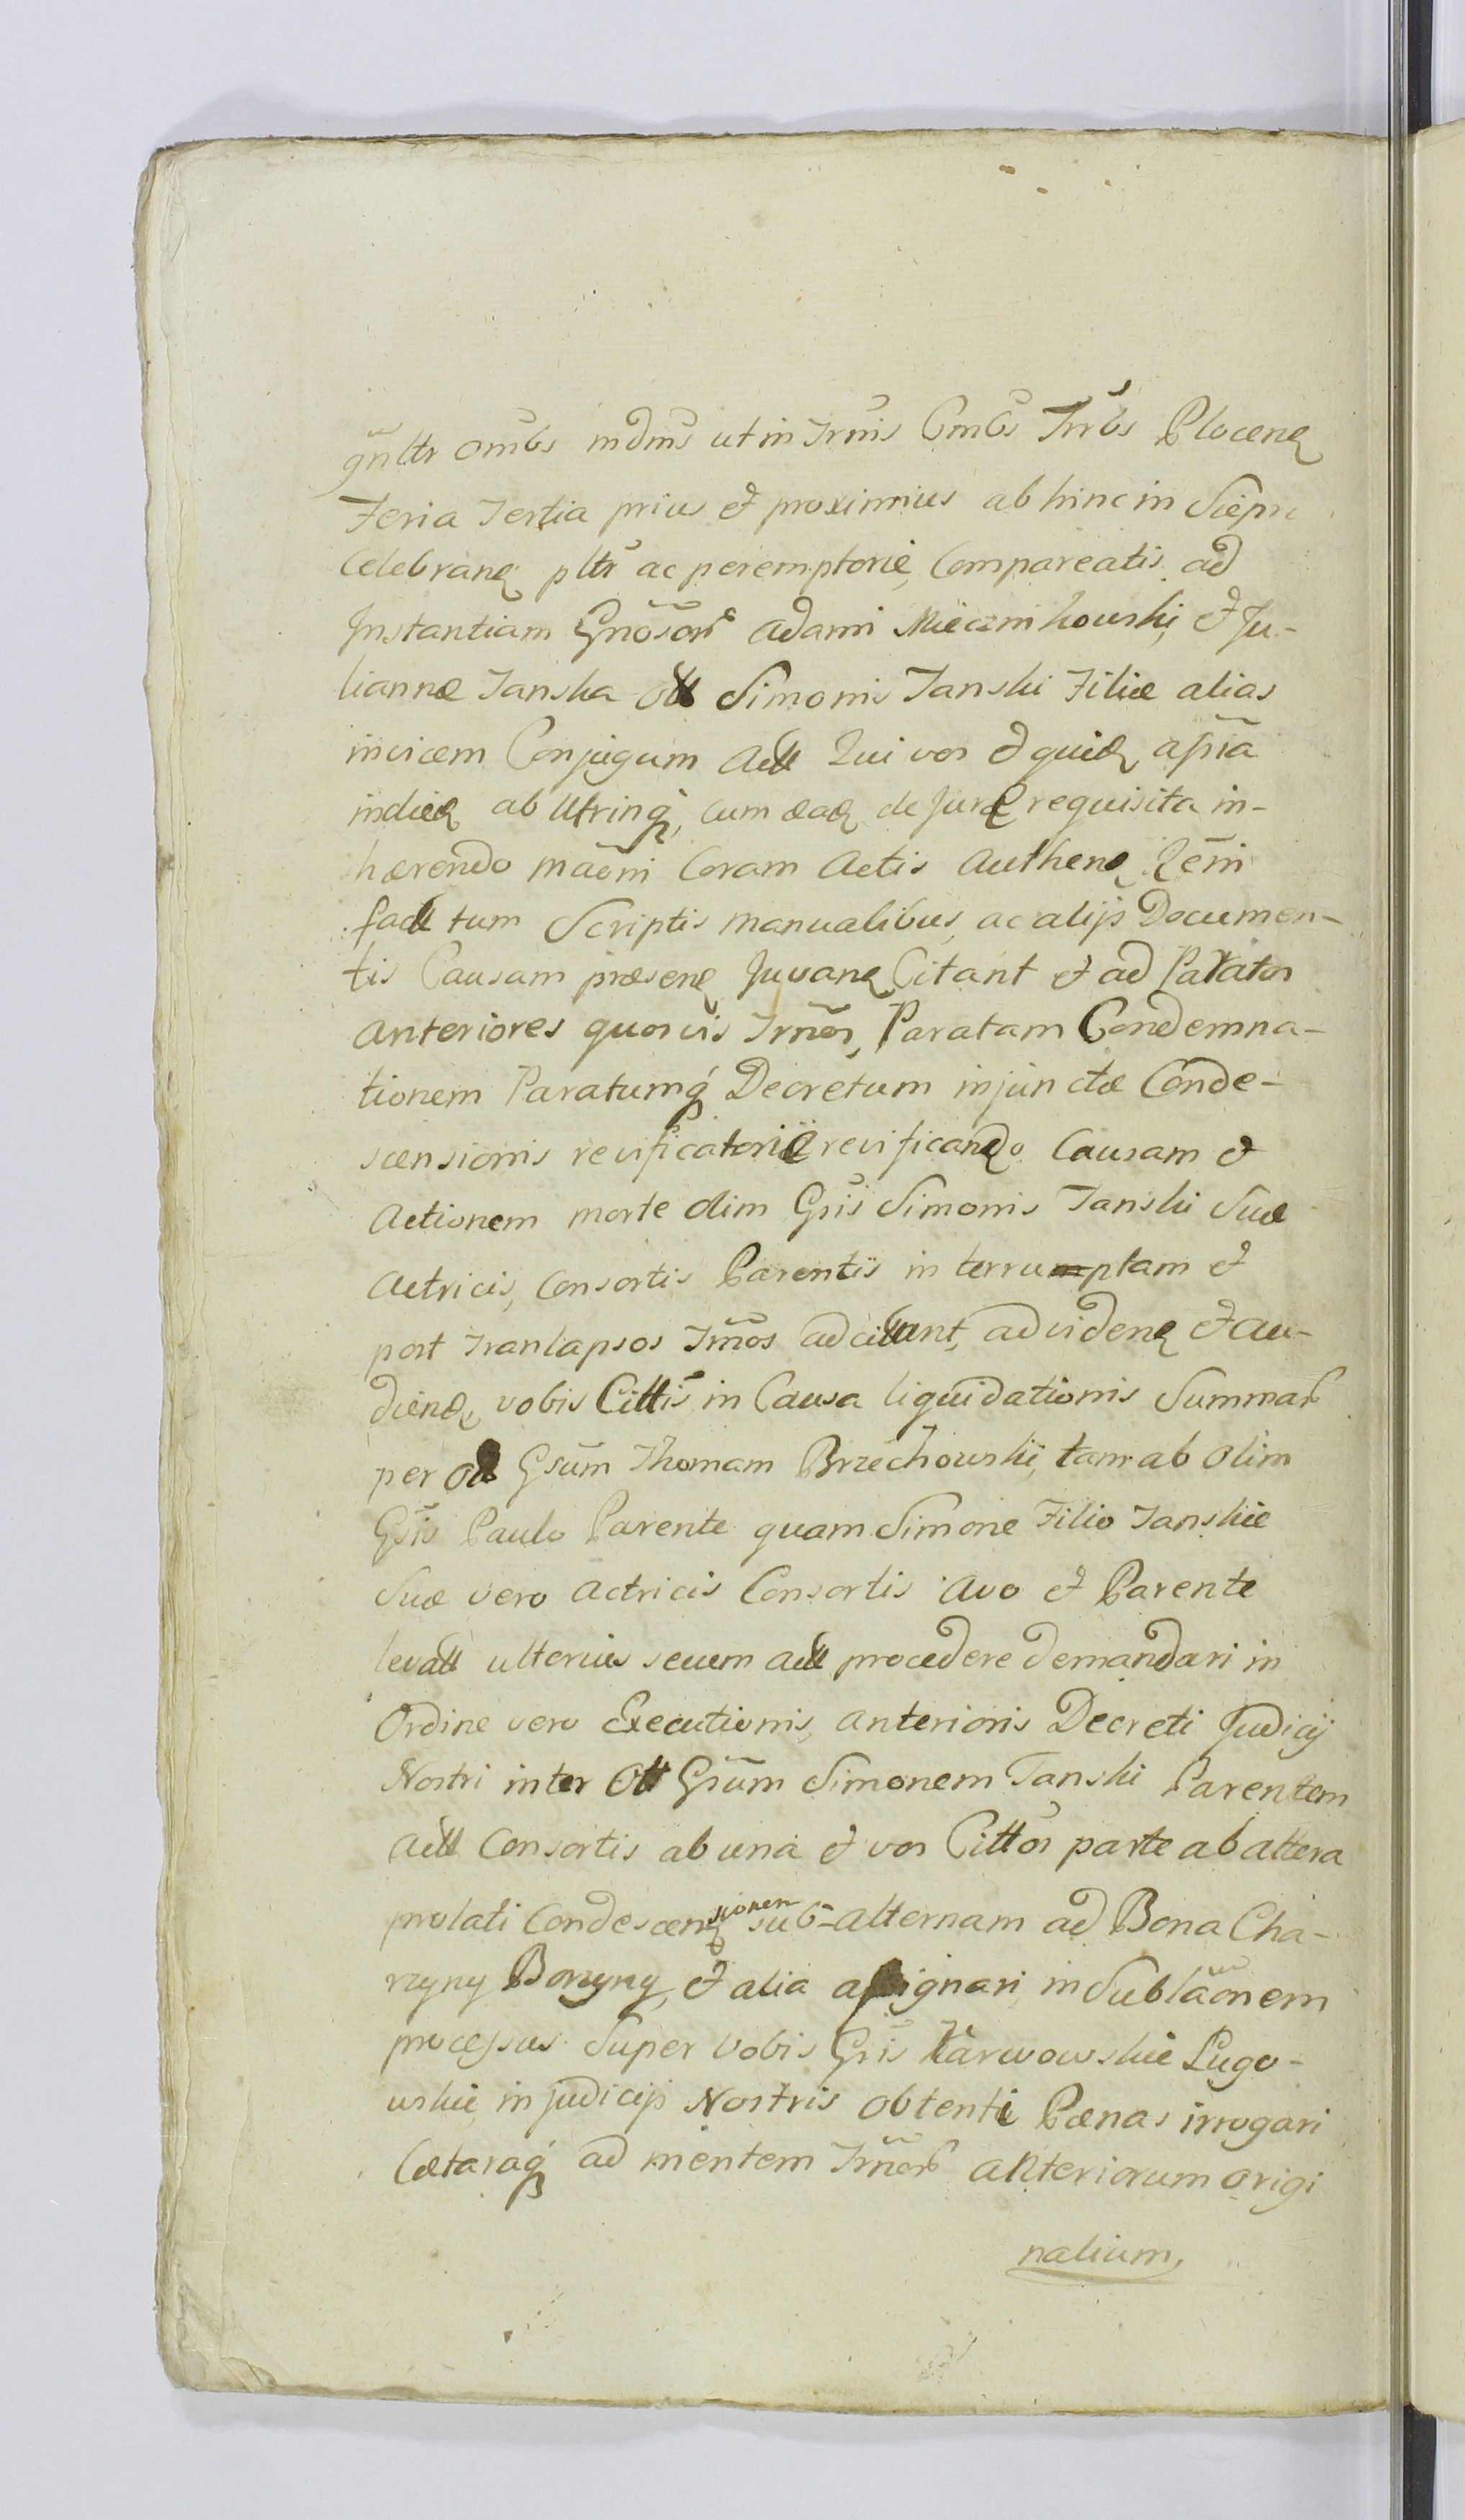 gñltr omĩbs mdm̃s ut in Trm̃is Cm̃bs Trr̃bs Plocenȩ
Feria Tertia prius et proximius ab hinc in Siepn
Celebranȩ pltr̃ ac peremptorie, Compareatis ad
Instantiam Gñosor̃ Adami Miecznikowski, et Ju-
liannæ Tanska Oll Simonis Tanski Filiæ alias
invicem Conjugum Acll Qui vos et quidȩ
indieȩ ab Utrinq́, cum eadȩ de Jure requisita in-
hærendo mãoni Coram Actis Authenȩ Rẽni
facll tum Scriptis manualibus, ac alijs Documen-
tis Causam præsenȩ Juvanȩ Citant et ad Paratos
anteriores quosvis Trm̃os, Paratam Condemna-
tionem Paratumq́ Decretum injunctæ Conde-
scensionis revificatorie revificando Causam et
Actionem morte olim Gsĩs Simonis Tanski Suæ
Actricis, Consortis Parentis interruptam et
post Tranlapsos Trm̃os adcitant, ad videnȩ et au-
dienȩ, vobis Cittĩs in Causa liquidationis Summar̃
per oll Gsũm Thomam Brzechowski, tam ab Olim
Gsĩs Paulo Parente quam Simone Filio Tanskie
Suæ vero Actricis Consortis Avo et Parente
levatt ulterius secum acll procedere demandari in
Ordine vero Executionis, anterioris Decreti Judicij
Nostri inter Oll Gsũm Simonem Tanski Parentem
Acll Consortis ab una et vos Cittõs parte ab altera
prolati Condescensionem sub-alternam ad Bona Cha-
rzyny Borzyny, et alia assignari, in Sublãonem
processus Super Vobis Gsĩs Karwowskie Lugo-
wskie, in Judicijs Nostris obtenti Pænas irrogari
Cætaraq́ ad mentem Trm̃or̃ anteriorum origi
nalium,